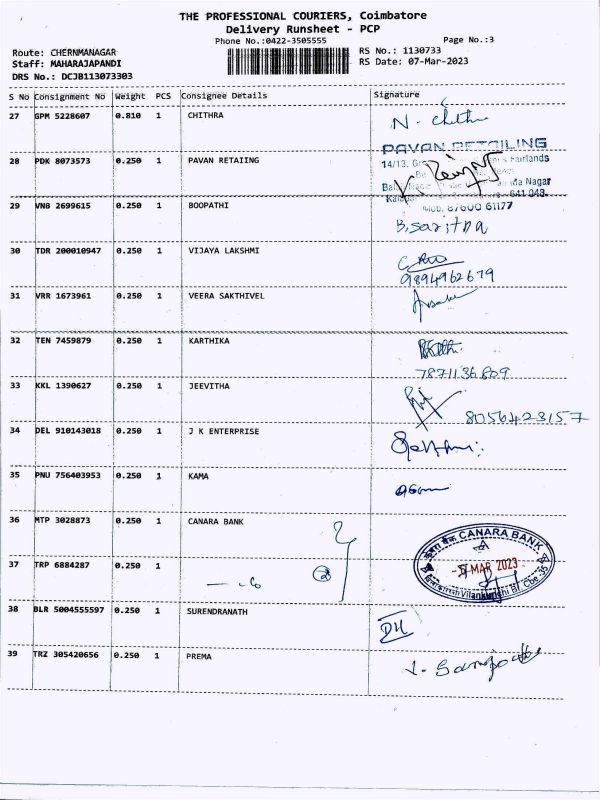 THE PROFESSIONAL COURIERS, Coimbatore
Delivery Runsheet - PCP
Phone No.:0422-3505555
Page No.:3
Route: CHERNMANAGAR
RS No.: 1130733
Staff: MAHARAJAPANDI
RS Date: 07-Mar-2023
DRS No.: DCJB113073303
S No Consignment No Weight PCS Consignee Details Signature
27 GPM 5228607 0.810 1 CHITHRA N. Chithra
PAVAN RETAILING
28 PDK 8073573 0.250 1 PAVAN RETAIING 14/13, Fairlands
Nagar
641 048.
Mob. 87600 61177
29 VNB 2699615 0.250 1 BOOPATHI
B. Saritha
30 TDR 200010947 0.250 1 VIJAYA LAKSHMI
9894962679
31 VRR 1673961 0.250 1 VEERA SAKTHIVEL
32 TEN 7459879 0.250 1 KARTHIKA
7871136809
33 KKL 1390627 0.250 1 JEEVITHA
8056423157
34 DEL 910143018 0.250 1 J K ENTERPRISE
35 PNU 756403953 0.250 1 KAMA
36 MTP 3028873 0.250 1 CANARA BANK
केनरा बैंक CANARA BANK
37 TRP 6884287 0.250 1
MAR 2023
Vilankurichi Br. Cbe-35
38 BLR 5004555597 0.250 1 SURENDRANATH
39 TRZ 305420656 0.250 1 PREMA